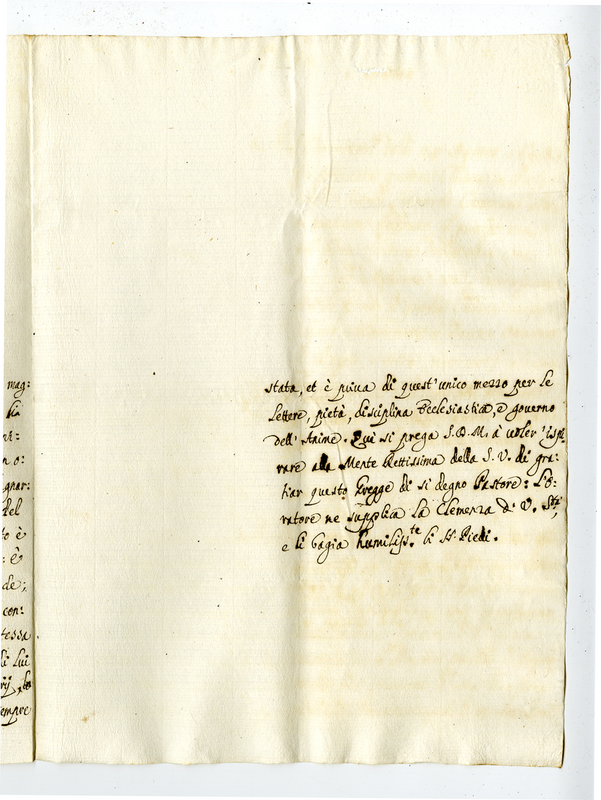 mag:
bia
ni:
no:
gnar:
del
to è
: è
de;
con:
tessa
di lui
rij, le
empre
stata, et è priva di quest'unico mezzo per le
lettere, pietà, disciplina Ecclesiastica, e governo
dell'Anime. Quì si prega S.D.M. à voler' ispi
rare alla Mente Rettissima della S.V. di gra:
tiar questo Gregge di si degno Pastore: L'O:
ratore ne supplica la Clemenza di V. Stà,
e li bagia humiliss.te li SS. Piedi.